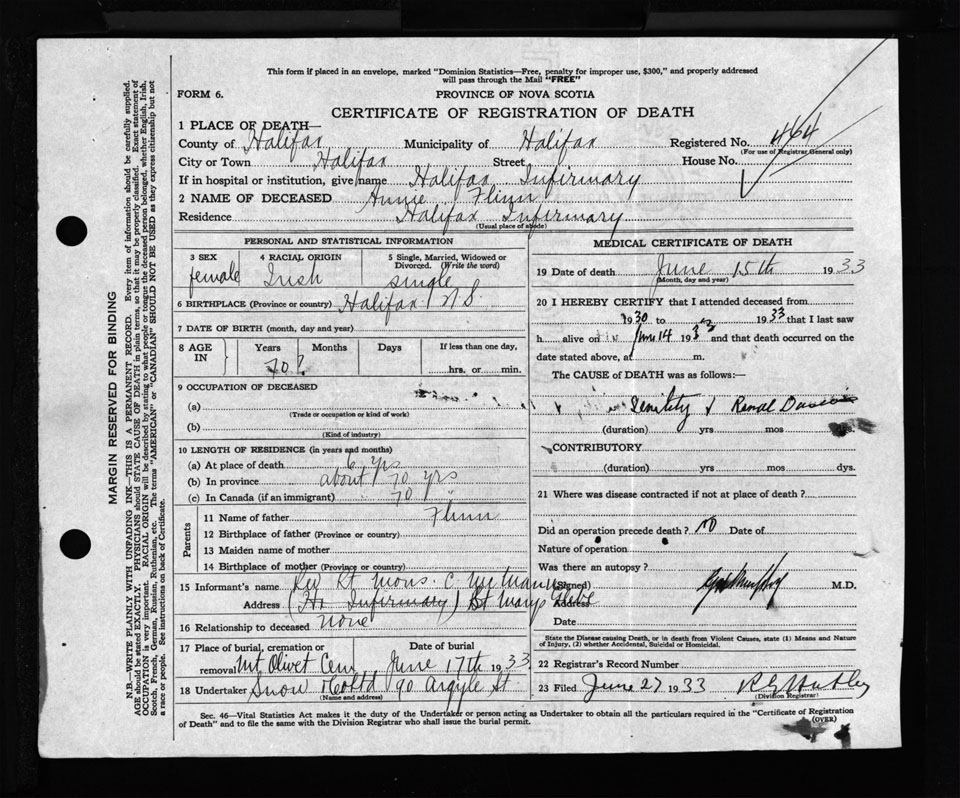 This form if placed in an envelope, marked "Dominion Statistics—Free, penalty for improper use, $300," and properly addressed
will pass through the Mail "FREE"
FORM 6. PROVINCE OF NOVA SCOTIA
CERTIFICATE OF REGISTRATION OF DEATH
1 PLACE OF DEATH—
County of Halifax Municipality of Halifax Registered No. 464
(For use of Registrar General only)
City or Town Halifax Street House No.
If in hospital or institution, give name Halifax Infirmary
2 NAME OF DECEASED Annie Flinn
Residence Halifax Infirmary
(Usual place of abode)
PERSONAL AND STATISTICAL INFORMATION
3 SEX female
4 RACIAL ORIGIN Irish
5 Single, Married, Widowed or
Divorced. (Write the word)
single
6 BIRTHPLACE (Province or country) Halifax N.S.
7 DATE OF BIRTH (month, day and year)
8 AGE IN Years Months Days If less than one day,
70? hrs. or min.
9 OCCUPATION OF DECEASED
(a)
(Trade or occupation or kind of work)
(b)
(Kind of industry)
10 LENGTH OF RESIDENCE (in years and months)
(a) At place of death 6 yrs
(b) In province about 70 yrs
(c) In Canada (if an immigrant) 70 "
Parents
11 Name of father Flinn
12 Birthplace of father (Province or country)
13 Maiden name of mother
14 Birthplace of mother (Province or country)
15 Informant's name Rev Rt Mons. C.
Address (Hx Infirmary) St Marys Glebe
16 Relationship to deceased none
17 Place of burial, cremation or Date of burial
removal Mt Olivet Cem June 17th 1933
18 Undertaker Snow & Co Ltd 90 Argyle St
(Name and address)
MEDICAL CERTIFICATE OF DEATH
19 Date of death June 15th 1933
(Month, day and year)
20 I HEREBY CERTIFY that I attended deceased from
1930 to 1933 that I last saw
h alive on June 14 1933 and that death occurred on the
date stated above, at m.
The CAUSE of DEATH was as follows:—
Senility & Renal
(duration) yrs mos
CONTRIBUTORY
(duration) yrs. mos. dys.
21 Where was disease contracted if not at place of death?
Did an operation precede death? no Date of
Nature of operation
Was there an autopsy?
(Signed) M.D.
Address
Date
State the Disease causing Death, or in death from Violent Causes, state (1) Means and Nature
of Injury, (2) whether Accidental, Suicidal or Homicidal.
22 Registrar's Record Number
23 Filed June 27 1933
(Division Registrar)
Sec. 46—Vital Statistics Act makes it the duty of the Undertaker or person acting as Undertaker to obtain all the particulars required in the "Certificate of Registration
of Death" and to file the same with the Division Registrar who shall issue the burial permit. (OVER)
MARGIN RESERVED FOR BINDING
N.B.—WRITE PLAINLY WITH UNFADING INK—THIS IS A PERMANENT RECORD. Every item of information should be carefully supplied.
AGE should be stated EXACTLY. PHYSICIANS should STATE CAUSE OF DEATH in plain terms, so that it may be properly classified. Exact statement of
OCCUPATION is very important. RACIAL ORIGIN will be described by stating to what people or tongue the deceased person belonged, whether English, Irish,
Scotch, French, German, Russian, Ruthenian, etc. The terms "AMERICAN" or "CANADIAN" SHOULD NOT BE USED as they express citizenship but not
a race or people. See instructions on back of Certificate.